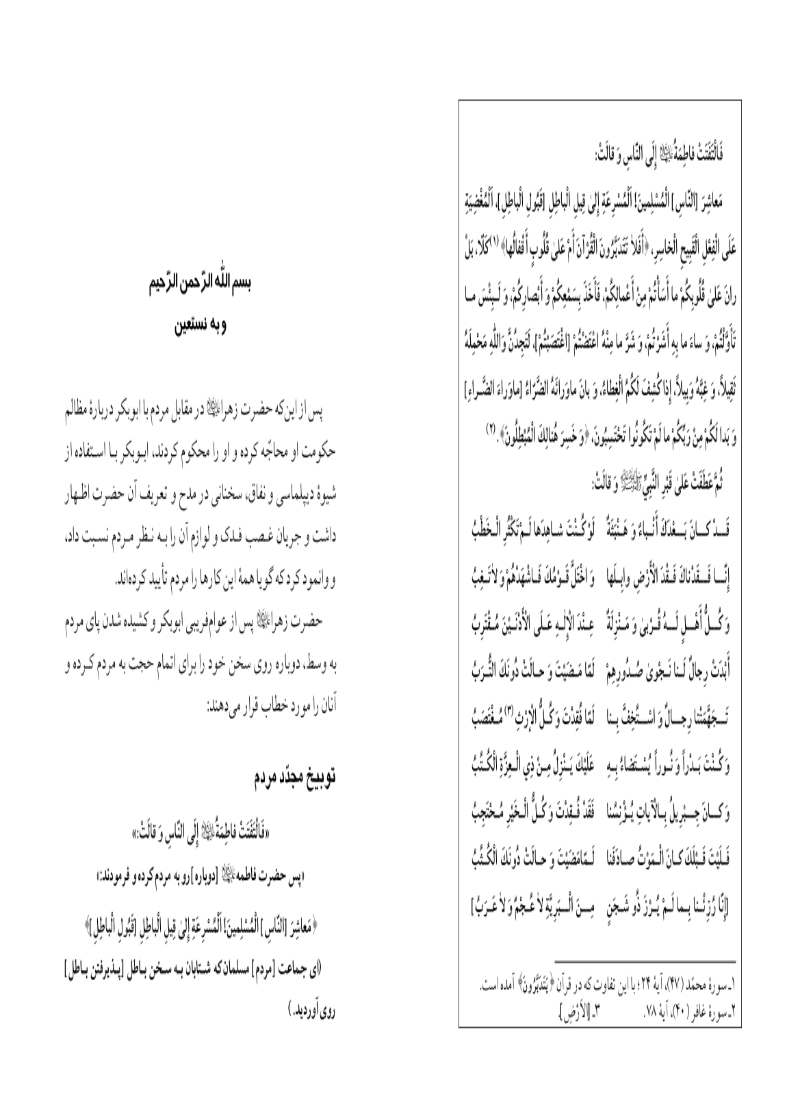 فَالْتَفَتَتْ فاطِمَةُ إِلَى النّاسِ وَ قالَتْ:
مَعاشِرَ [النّاسِ] الْمُسْلِمينَ! اَلْمُسْرِعَةِ إِلىٰ قِيلِ الْباطِلِ [قَبُولِ الْباطِلِ]، اَلْمُغْضِيَةِ
عَلَى الْفِعْلِ الْقَبِيحِ الْخاسِرِ، ﴿أَفَلاٰ تَتَدَبَّرُونَ الْقُرْآنَ أَمْ عَلىٰ قُلُوبٍ أَقْفالُها﴾(۱) كَلّا، بَلْ
رانَ عَلىٰ قُلُوبِكُمْ ما أَسَأْتُمْ مِنْ أَعْمالِكُمْ، فَأَخَذَ بِسَمْعِكُمْ وَ أَبْصارِكُمْ، وَ لَبِئْسَ ما
تَأَوَّلْتُمْ، وَ ساءَ ما بِهِ أَشَرْتُمْ، وَ شَرَّ ما مِنْهُ اعْتَضْتُمْ [اغْتَصَبْتُمْ]، لَتَجِدُنَّ وَاللهِ مَحْمِلَهُ
ثَقِيلاً، وَ غِبَّهُ وَبِيلاً، إِذا كُشِفَ لَكُمُ الْغِطاءُ، وَ بانَ ماوَرائَهُ الضَّرّاءُ [ماوَراءَ الضَّراءِ]
وَ بَدا لَكُمْ مِنْ رَبِّكُمْ ما لَمْ تَكُونُوا تَحْتَسِبُونَ، ﴿وَ خَسِرَ هُنالِكَ الْمُبْطِلُونَ﴾.(۲)
ثُمَّ عَطَفَتْ عَلىٰ قَبْرِ النَّبِيِّ وَ قالَتْ:
قَدْ كانَ بَعْدَكَ أَنْباءٌ وَ هَنْبَثَةٌ لَوْ كُنْتَ شاهِدَها لَمْ تَكْثُرِ الْخَطْبُ
إِنّا فَقَدْناكَ فَقْدَ الْأَرْضِ وابِلَها وَ اخْتَلَّ قَوْمُكَ فَاشْهَدْهُمْ وَ لاٰ تَغِبُ
وَ كُلُّ أَهْلٍ لَهُ قُرْبىٰ وَ مَنْزِلَةٌ عِنْدَ الْإِلٰهِ عَلَى الْأَدْنَيْنَ مُقْتَرِبُ
أَبْدَتْ رِجالٌ لَنا نَجْوىٰ صُدُورِهِمْ لَمّا مَضَيْتَ وَ حالَتْ دُونَكَ التُّرَبُ
تَجَهَّمَتْنا رِجالٌ وَ اسْتُخِفَّ بِنا لَمّا فُقِدْتَ وَ كُلُّ الْإِرْثِ(۳) مُغْتَصَبُ
وَ كُنْتَ بَدْراً وَ نُوراً يُسْتَضاءُ بِهِ عَلَيْكَ يَنْزِلُ مِنْ ذِي الْعِزَّةِ الْكُتُبُ
وَ كانَ جِبْرِيلُ بِالْآياتِ يُؤْنِسُنا فَقَدْ فُقِدْتَ وَ كُلُّ الْخَيْرِ مُحْتَجِبُ
فَلَيْتَ قَبْلَكَ كانَ الْمَوْتُ صادَفَنا لَمّا مَضَيْتَ وَ حالَتْ دُونَكَ الْكُثُبُ
[إِنّا رُزِئْنا بِما لَمْ يُرْزَ ذُو شَجَنٍ مِنَ الْبَرِيَّةِ لاٰ عُجْمٌ وَ لاٰ عَرَبُ]
۱ـ سورهٔ محمّد (۴۷)، آیهٔ ۲۴؛ با این تفاوت که در قرآن ﴿يَتَدَبَّرُونَ﴾ آمده است.
۲ـ سورهٔ غافر (۴۰)، آیهٔ ۷۸. ۳ـ [الأَرْضِ].
بسم الله الرّحمن الرّحیم
و به نستعین
پس از این‌که حضرت زهرا در مقابل مردم با ابوبکر دربارهٔ مظالم
حکومت او محاجّه کرده و او را محکوم کردند، ابوبکر با استفاده از
شیوهٔ دیپلماسی و نفاق، سخنانی در مدح و تعریف آن حضرت اظهار
داشت و جریان غصب فدک و لوازم آن را به نظر مردم نسبت داد،
و وانمود کرد که گویا همهٔ این کارها را مردم تأیید کرده‌اند.
حضرت زهرا پس از عوام‌فریبی ابوبکر و کشیده شدن پای مردم
به وسط، دوباره روی سخن خود را برای اتمام حجت به مردم کرده و
آنان را مورد خطاب قرار می‌دهند:
توبیخ مجدّد مردم
«فَالْتَفَتَتْ فاطِمَةُ إِلَى النّاسِ وَ قالَتْ:»
«پس حضرت فاطمه [دوباره] رو به مردم کرده و فرمودند:»
﴿مَعاشِرَ [النّاسِ] الْمُسْلِمينَ! اَلْمُسْرِعَةِ إِلىٰ قِيلِ الْباطِلِ [قَبُولِ الْباطِلِ]﴾
(ای جماعت [مردم] مسلمان که شتابان به سخن باطل [پذیرفتن باطل]
روی آوردید.)